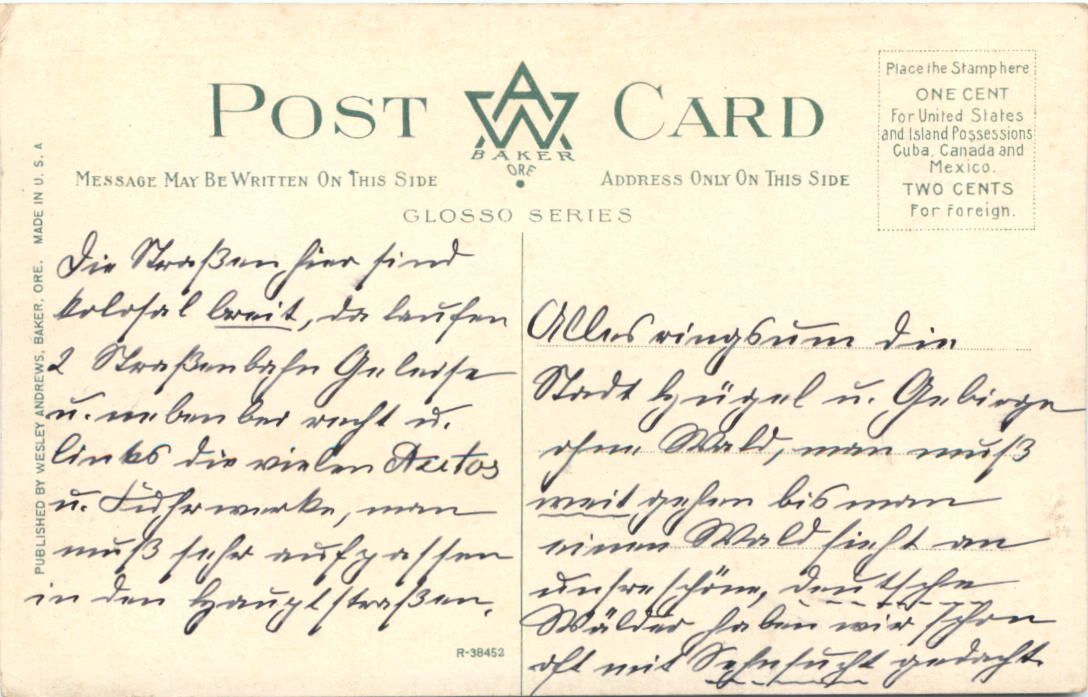 POST CARD
AW
BAKER
ORE
MESSAGE MAY BE WRITTEN ON THIS SIDE
ADDRESS ONLY ON THIS SIDE
GLOSSO SERIES
Place the Stamp here
ONE CENT
For United States
and Island Possessions
Cuba, Canada and
Mexico.
TWO CENTS
For Foreign.
PUBLISHED BY WESLEY ANDREWS, BAKER, ORE. MADE IN U. S. A
Die Straßen hier sind
kolosal breit, da laufen
2 Straßenbahn Geleise
u. nebenbei recht u.
links die vielen Autos
u. Fuhrwerke, man
muß sehr aufpassen
in den Hauptstraßen.
R-38452
Alles ringsum die
Stadt Hügel u. Gebirge
ohne Wald, man muß
weit gehen bis man
einen Wald sieht an
unsre schöne, deutsche
Wälder haben wir schon
oft mit Sehnsucht gedacht.